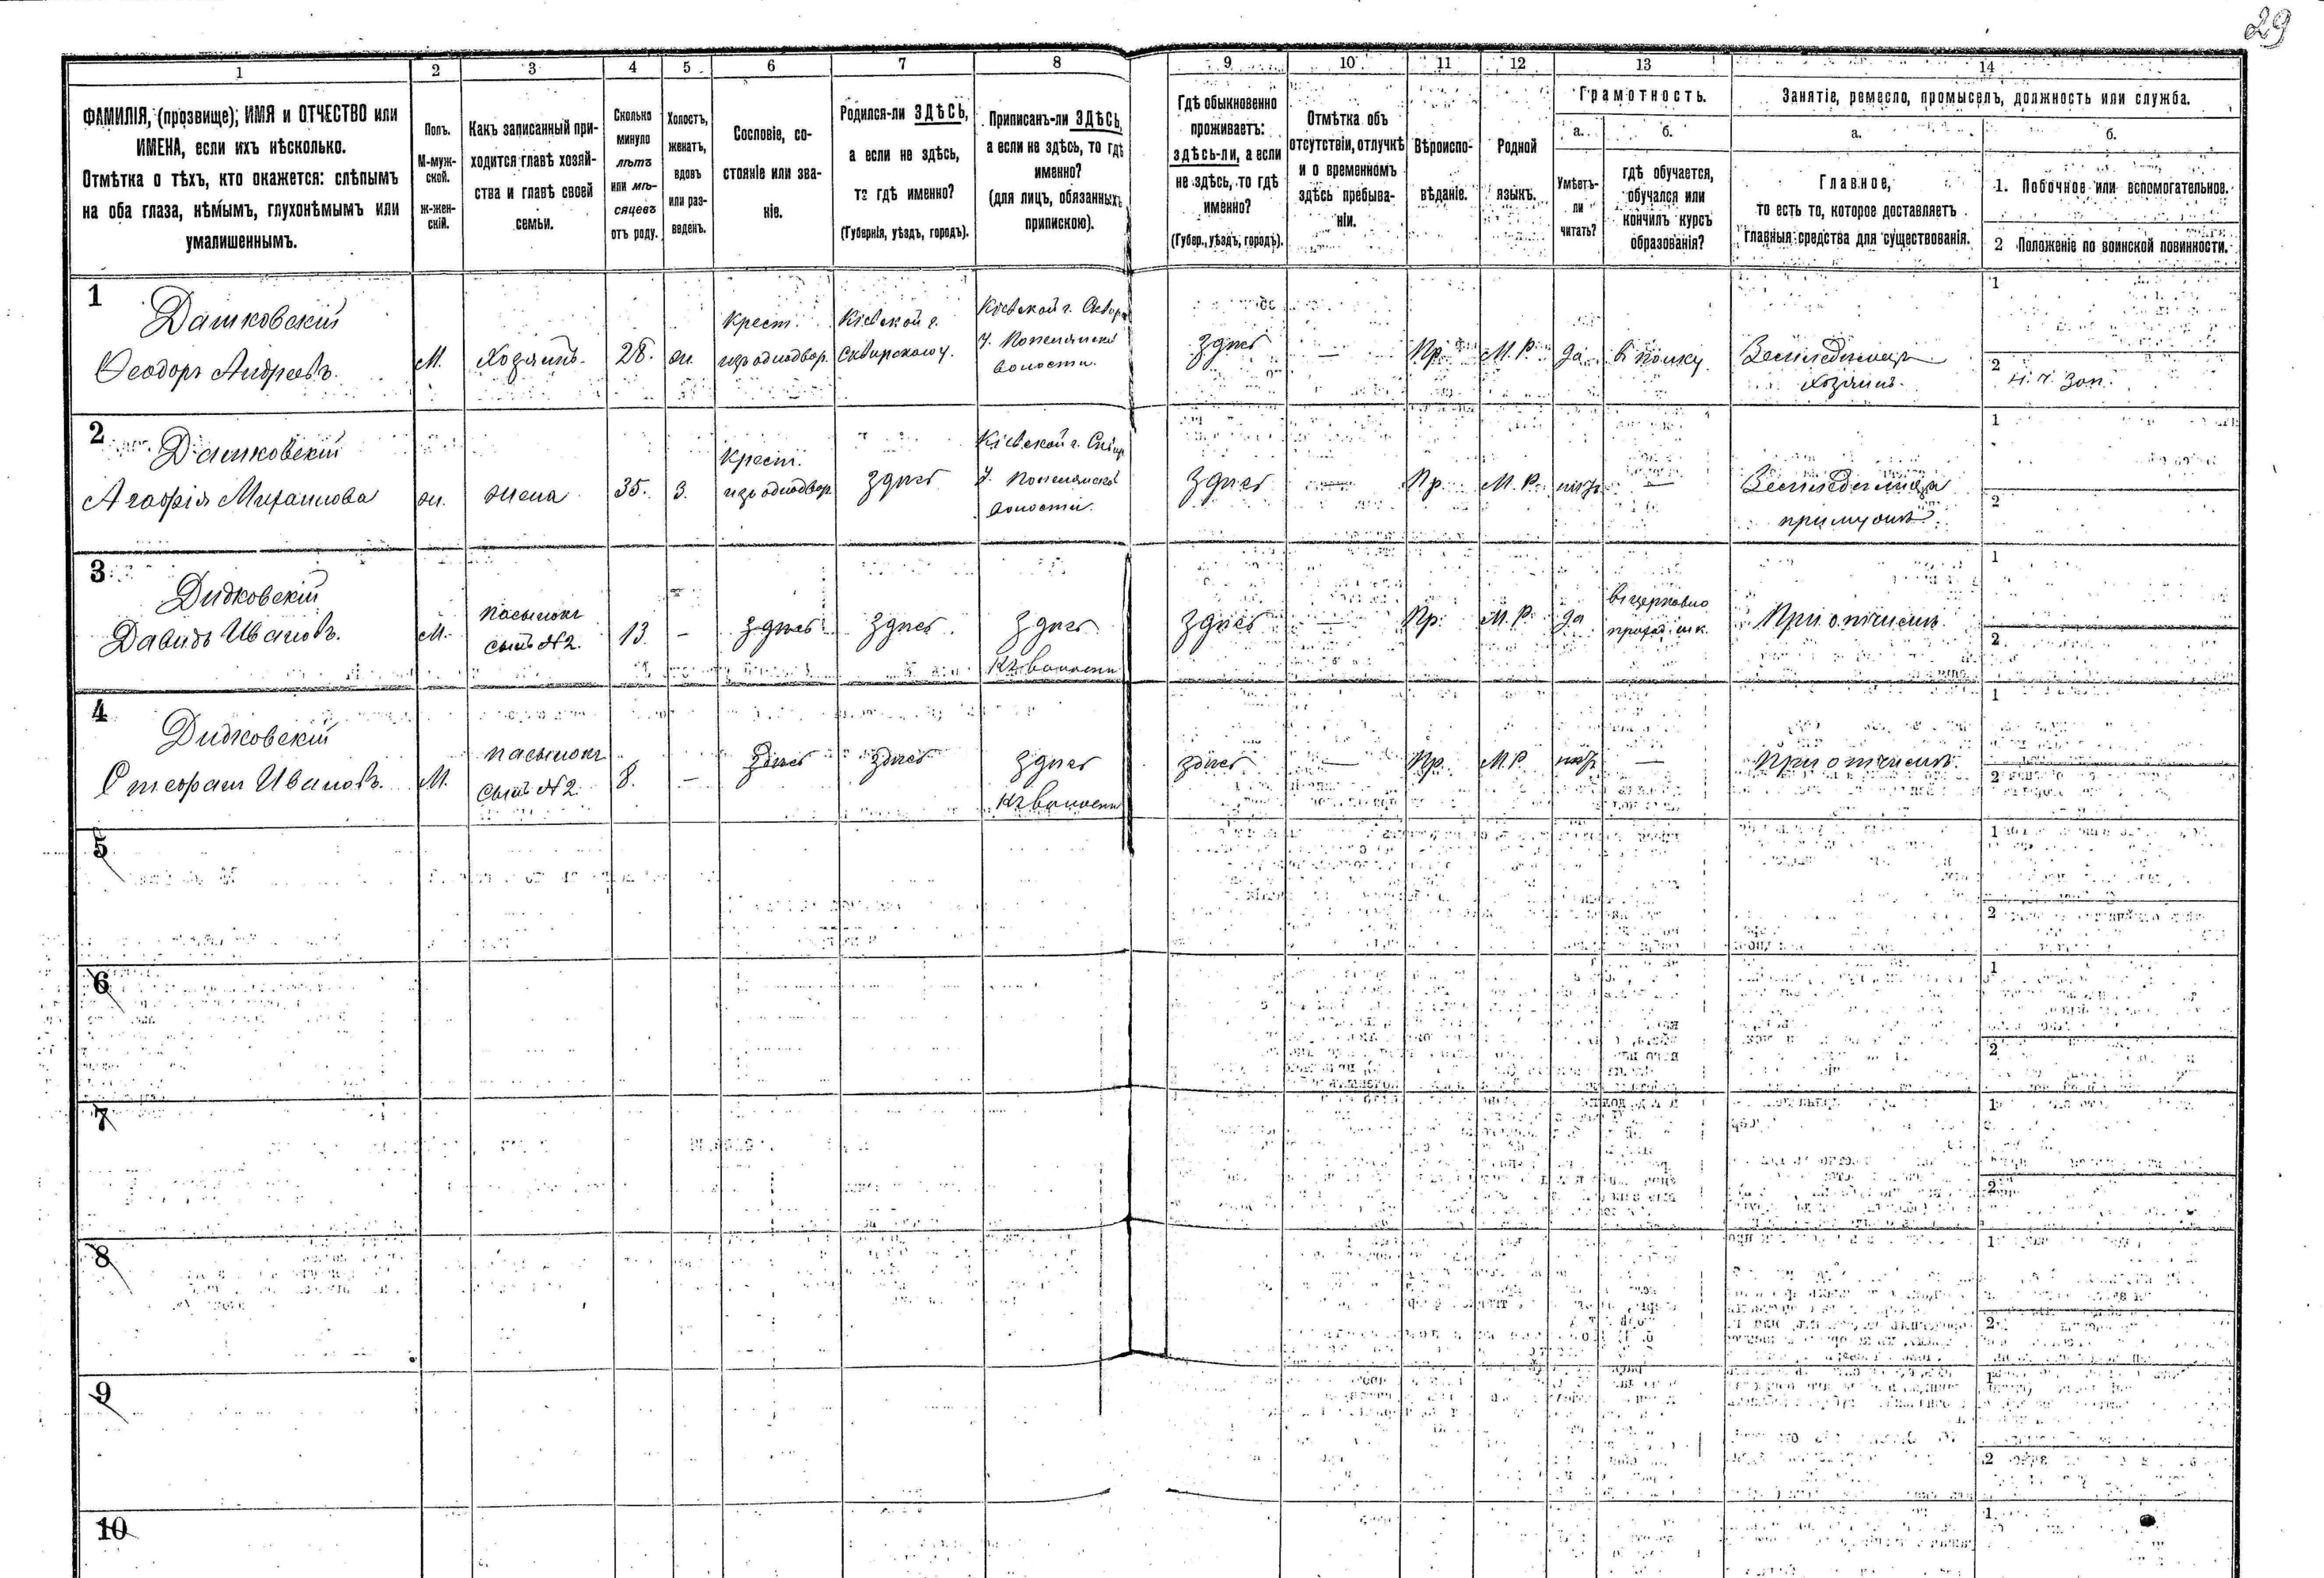 29
1 2 3 4 5 6 7 8 9 10 11 12 13 14
ФАМИЛІЯ, (прозвище), ИМЯ и ОТЧЕСТВО или
ИМЕНА, если ихъ нѣсколько.
Отмѣтка о тѣхъ, кто окажется: слѣпымъ
на оба глаза, нѣмымъ, глухонѣмымъ или
умалишеннымъ.
Полъ.
М-муж-
ской.
Ж-жен-
скій.
Какъ записанный при-
ходится главѣ хозяй-
ства и главѣ своей
семьи.
Сколько
минуло
лѣтъ
или мѣ-
сяцевъ
отъ роду.
Холостъ,
женатъ,
вдовъ
или раз-
веденъ.
Сословіе, со-
стояніе или зва-
ніе.
Родился-ли ЗДѢСЬ,
а если не здѣсь,
то гдѣ именно?
(Губернія, уѣздъ, городъ).
Приписанъ-ли ЗДѢСЬ,
а если не здѣсь, то гдѣ
именно?
(для лицъ, обязанныхъ
припискою).
Гдѣ обыкновенно
проживаетъ:
здѣсь-ли, а если
не здѣсь, то гдѣ
именно?
(Губер., уѣздъ, городъ).
Отмѣтка объ
отсутствіи, отлучкѣ
и о временномъ
здѣсь пребыва-
ніи.
Вѣроиспо-
вѣданіе.
Родной
языкъ.
Грамотность.
а.
Умѣетъ-
ли
читать?
б.
гдѣ обучается,
обучался или
кончилъ курсъ
образованія?
Занятіе, ремесло, промыселъ, должность или служба.
а.
Главное,
то есть то, которое доставляетъ
главныя средства для существованія.
б.
1. Побочное или вспомогательное.
2 Положеніе по воинской повинности.
1
Дашковскій
Ѳеодоръ Андреевъ.
М.
Хозяинъ.
28.
ж.
Крест.
изъ однодвор.
Кіевской г.
Сквирского у.
Кіевской г. Сквир
у.
волости.
здѣсь
—
Пр.
М. Р.
да
в полку
Земледѣлецъ
Хозяинъ.
1
2
зап.
2
Дашковскій
Агафія Михаилова
ж.
жена
35.
З.
Крест.
изъ однодвор.
здѣсь
Кіевской г. Сквир
у.
волости.
здѣсь
—
Пр.
М. Р.
нѣтъ
—
Земледѣлица
при мужѣ.
1
2
3
Дидковскій
Давидъ Ивановъ.
М.
пасынокъ
сынъ №2.
13.
—
здѣсь
здѣсь
здѣсь
къ волости
здѣсь
—
Пр.
М. Р.
да
в церковно
приход. шк.
При отчимѣ
1
2
4
Дидковскій
Ивановъ.
М.
пасынокъ
сынъ №2.
8.
—
здѣсь
здѣсь
здѣсь
къ волости
здѣсь
—
Пр.
М. Р.
нѣтъ
—
При отчимѣ
1
2
5
1
2
6
1
2
7
1
2
8
1
2
9
1
2
10
1